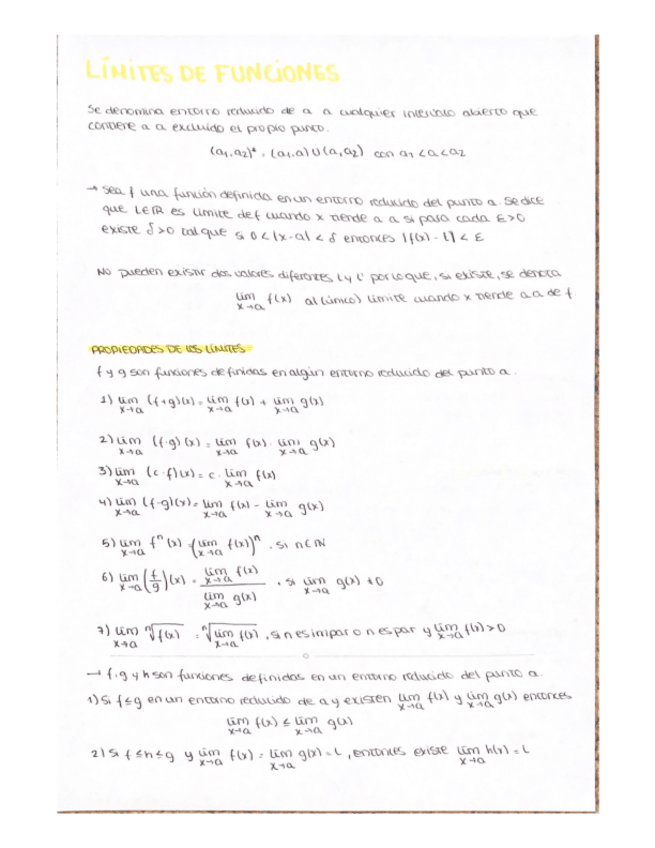 LÍMITES DE FUNCIONES
Se denomina entorno reducido de a a cualquier intervalo abierto que
contiene a a excluido el propio punto.
(a₁,a₂)* = (a₁,a) ∪ (a,a₂) con a₁ < a < a₂
→ Sea f una función definida en un entorno reducido del punto a. Se dice
que L∈ℝ es límite de f cuando x tiende a a si para cada ε>0
existe δ>0 tal que si 0<|x-a|<δ entonces |f(x)-L|<ε
No pueden existir dos valores diferentes L y L' por lo que, si existe, se denota
lim x→a f(x) al (único) límite cuando x tiende a a de f
PROPIEDADES DE LOS LÍMITES
f y g son funciones definidas en algún entorno reducido del punto a.
1) lim x→a (f+g)(x) = lim x→a f(x) + lim x→a g(x)
2) lim x→a (f·g)(x) = lim x→a f(x) · lim x→a g(x)
3) lim x→a (c·f)(x) = c · lim x→a f(x)
4) lim x→a (f-g)(x) = lim x→a f(x) - lim x→a g(x)
5) lim x→a fⁿ(x) = (lim x→a f(x))ⁿ, si n∈ℕ
6) lim x→a (f/g)(x) = lim x→a f(x) / lim x→a g(x), si lim x→a g(x) ≠ 0
7) lim x→a ⁿ√f(x) = ⁿ√lim x→a f(x), si n es impar o n es par y lim x→a f(x) > 0
→ f, g y h son funciones definidas en un entorno reducido del punto a.
1) Si f≤g en un entorno reducido de a y existen lim x→a f(x) y lim x→a g(x) entonces
lim x→a f(x) ≤ lim x→a g(x)
2) Si f≤h≤g y lim x→a f(x) = lim x→a g(x) = L, entonces existe lim x→a h(x) = L